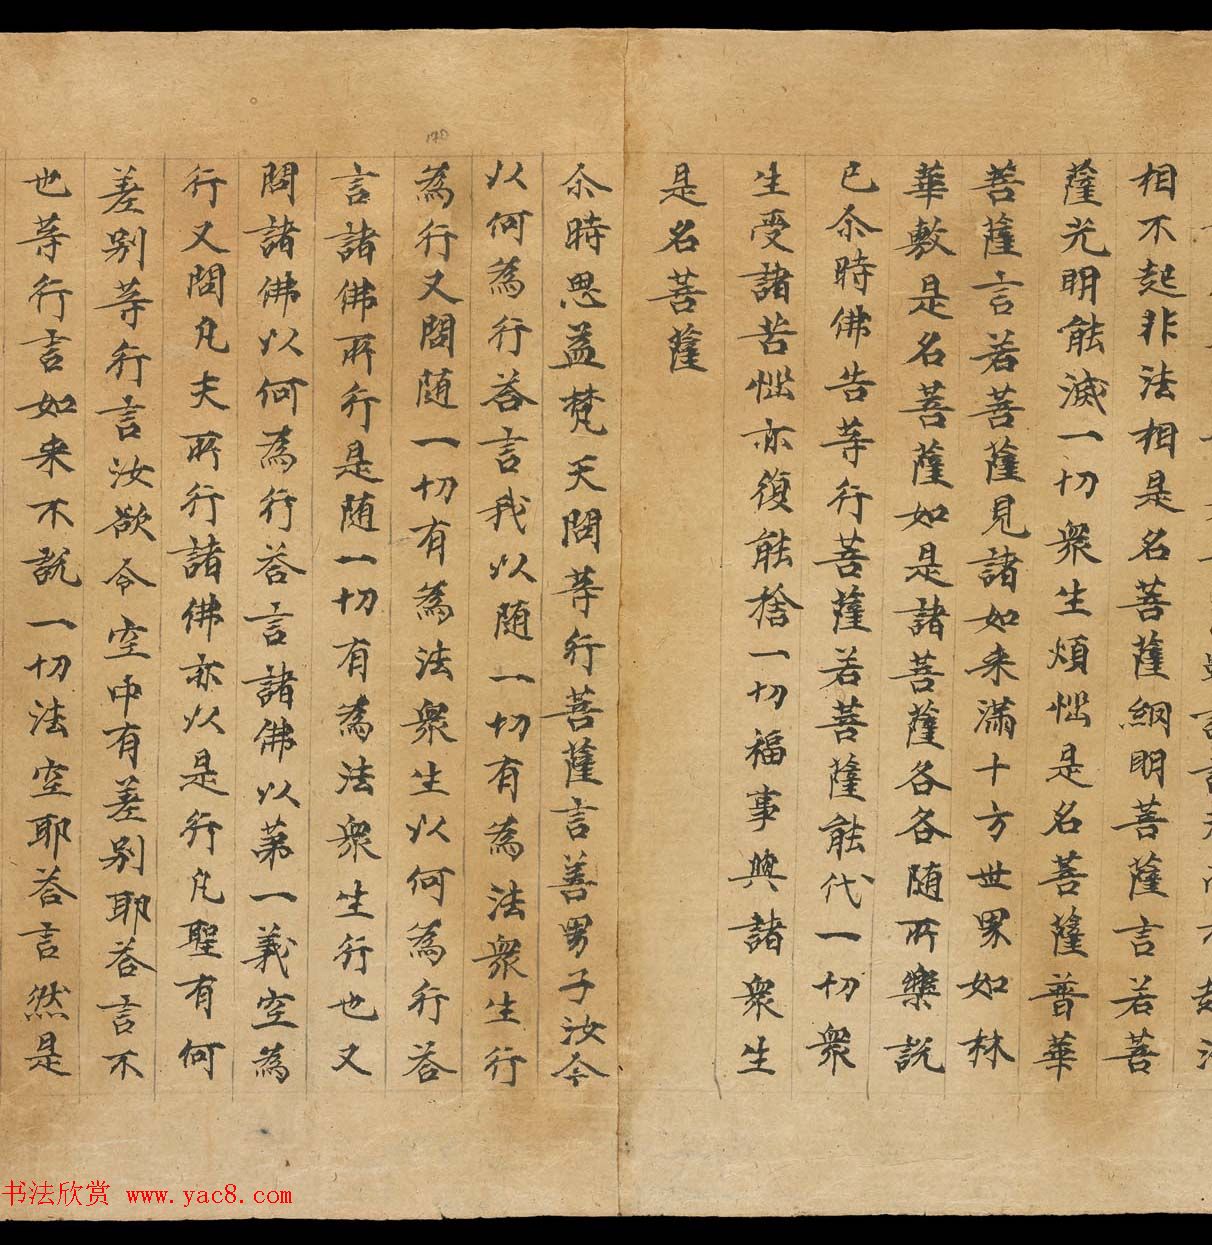 相不起非法相是名菩薩網明菩薩言若菩
薩光明能滅一切衆生煩惱是名菩薩普華
菩薩言若菩薩見諸如来滿十方世界如林
華敷是名菩薩如是諸菩薩各各随所樂説
已尒時佛告等行菩薩若菩薩能代一切衆
生受諸苦惱亦復能捨一切福事與諸衆生
是名菩薩
尒時思益梵天問等行菩薩言善男子汝今
以何為行荅言我以随一切有為法衆生行
為行又問随一切有為法衆生以何為行荅
言諸佛所行是随一切有為法衆生行也又
問諸佛以何為行荅言諸佛以第一義空為
行又問凡夫所行諸佛亦以是行凡聖有何
差别等行言汝欲令空中有差别耶荅言不
也等行言如来不説一切法空耶荅言然是
170
书法欣赏 www.yac8.com